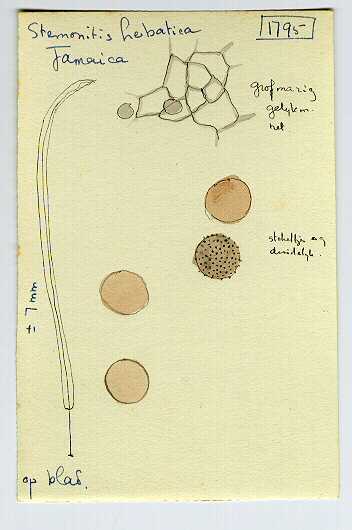 Stemonitis herbatica
1795
Jamaica
grofmazig
gelijkm.
net
stekeltjes
duidelijk.
± 7 mm
op blad.